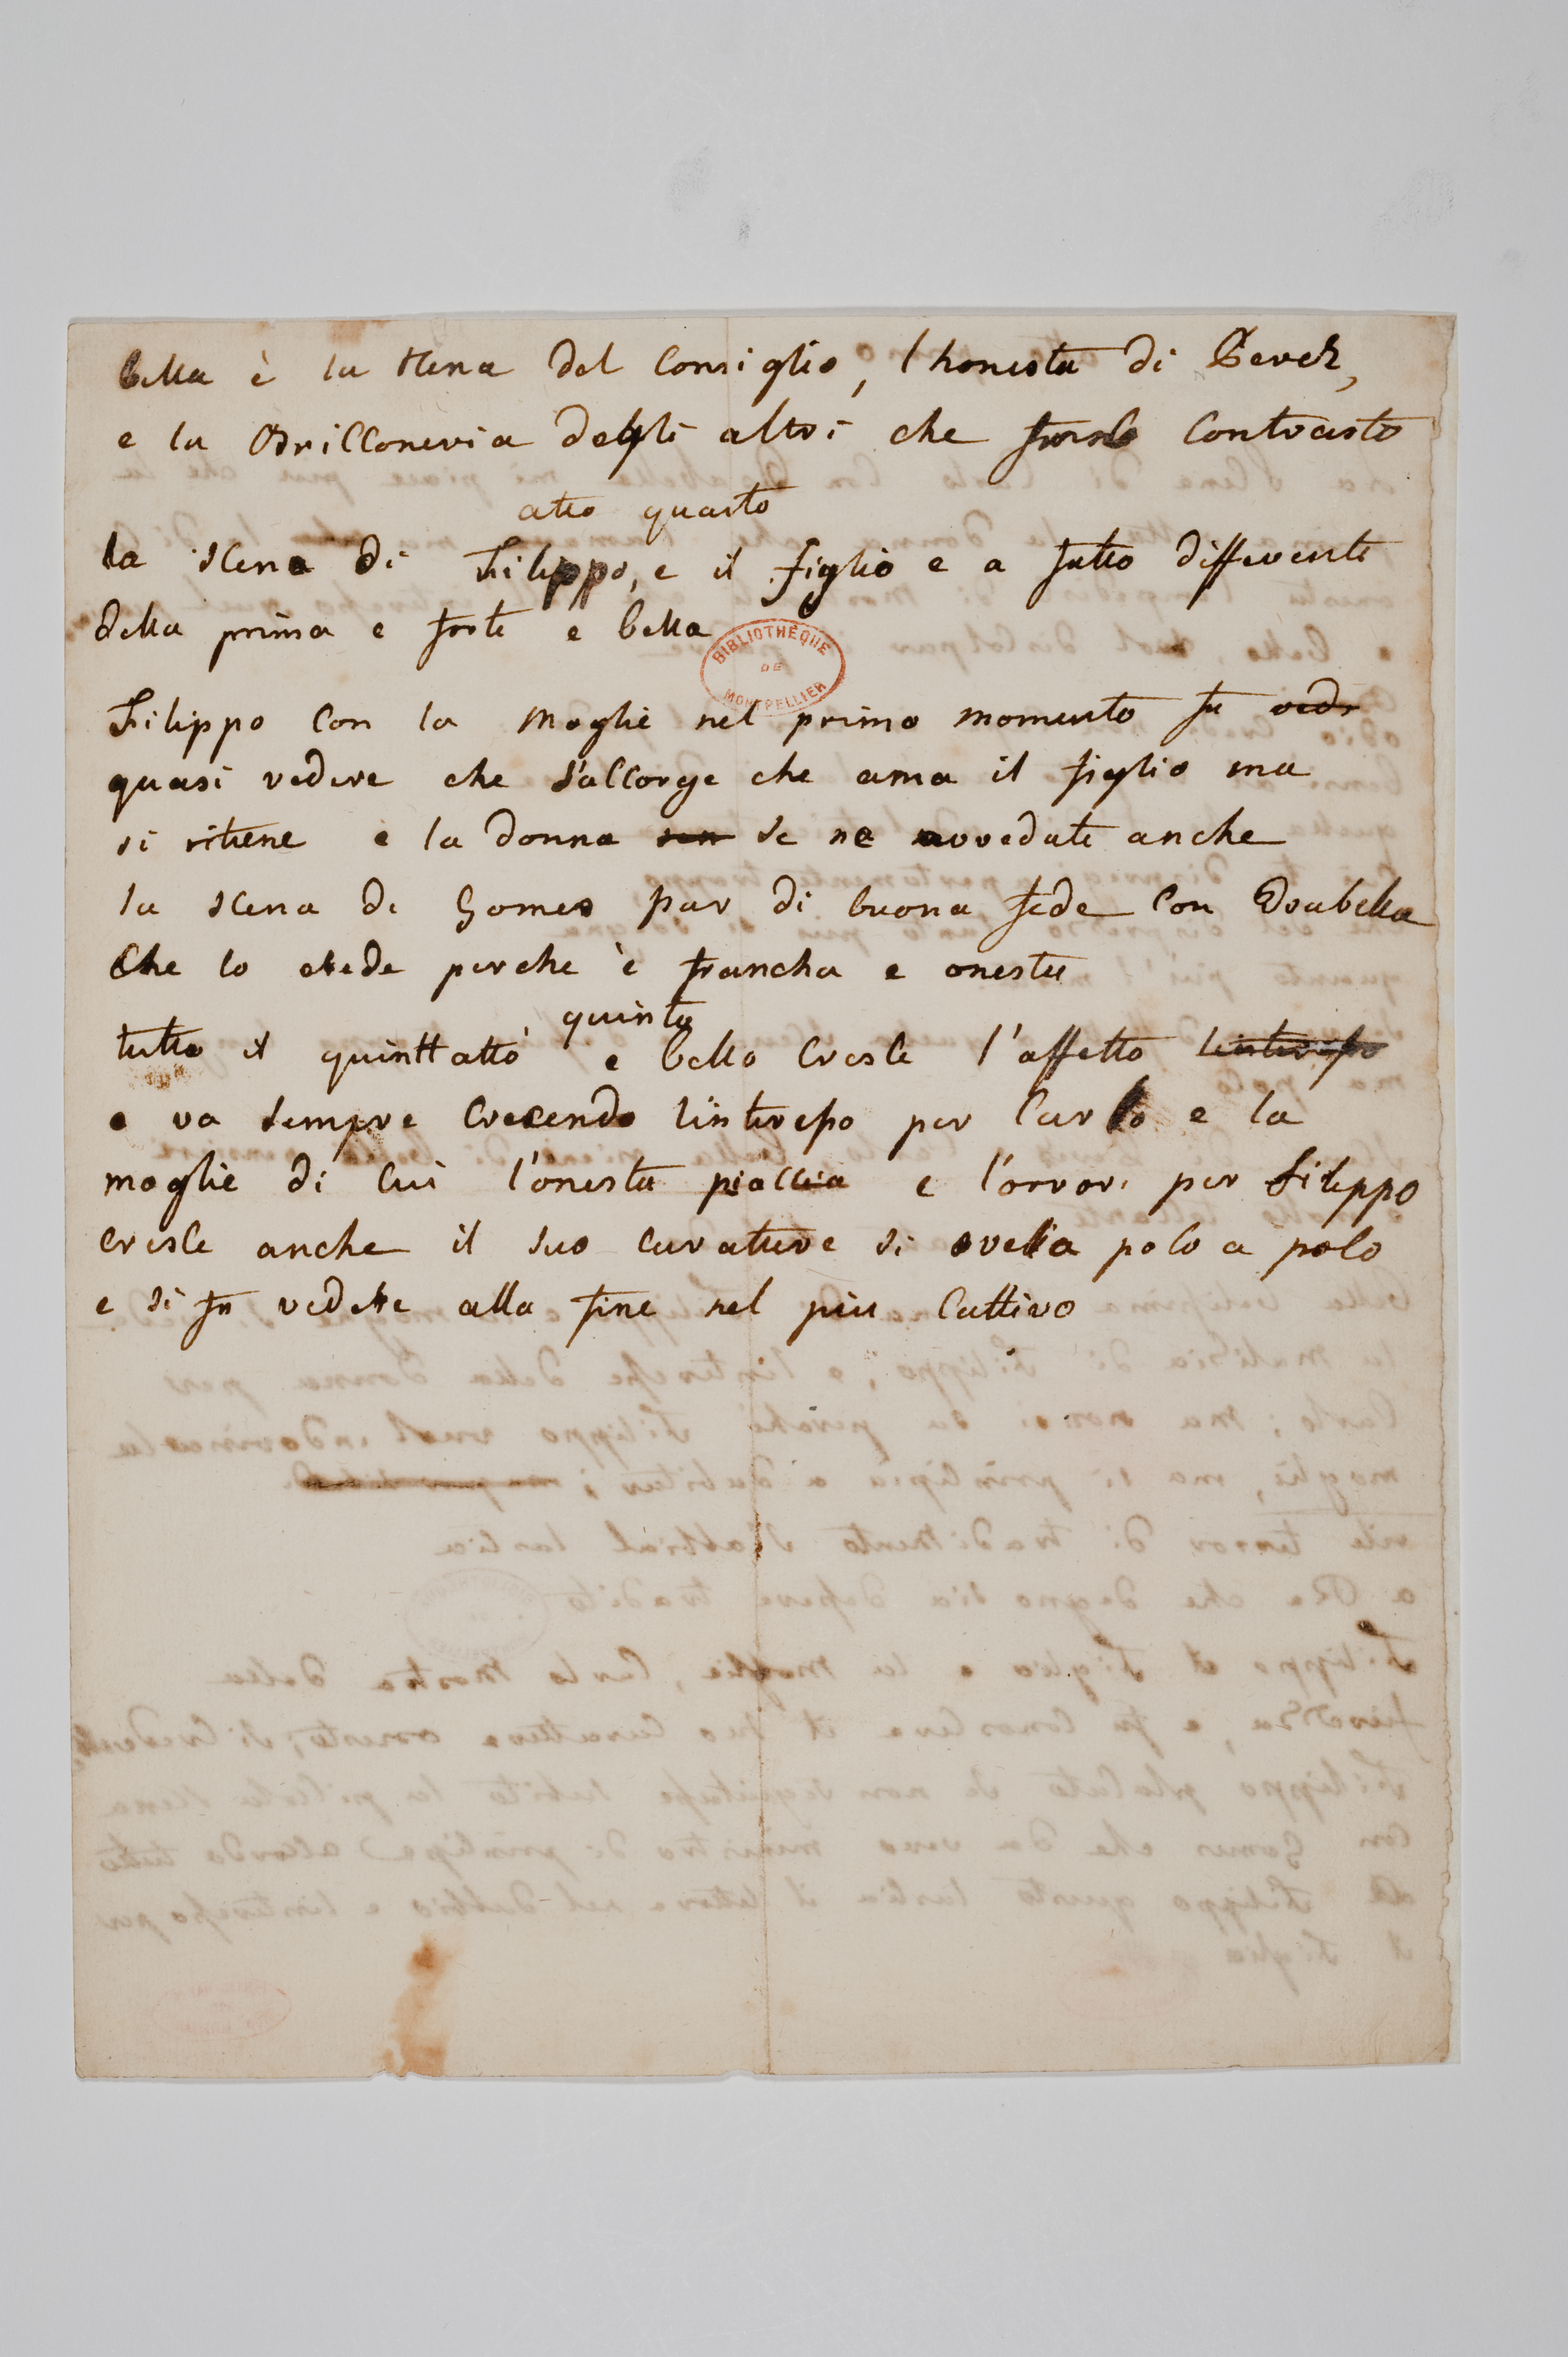 bella è la scena del Consiglio, l honesta di Perez,
e la Briccioneria degli altri che fa contrasto
atto quarto
la scena di Filippo, e il figlio e a fatto differente
della prima e forte e bella
BIBLIOTHÈQUE
DE
MONTPELLIER
Filippo con la moglie nel primo momento fa vedr
quasi vedere che s'accorge che ama il figlio ma
si ritiene e la donna non se ne avvedute anche
la scena di Gomes par di buona fede con Isabella
che lo crede perche è francha e onesta
quinto
tutto il quintt atto e bello cresce l'affetto linteresso
e va sempre crecendo linteresso per Carlo e la
moglie di cui l'onesta piaccia e l'orrore per Filippo
cresce anche il suo carattere si svella poco a poco
e si fa vedere alla fine nel piu cattivo